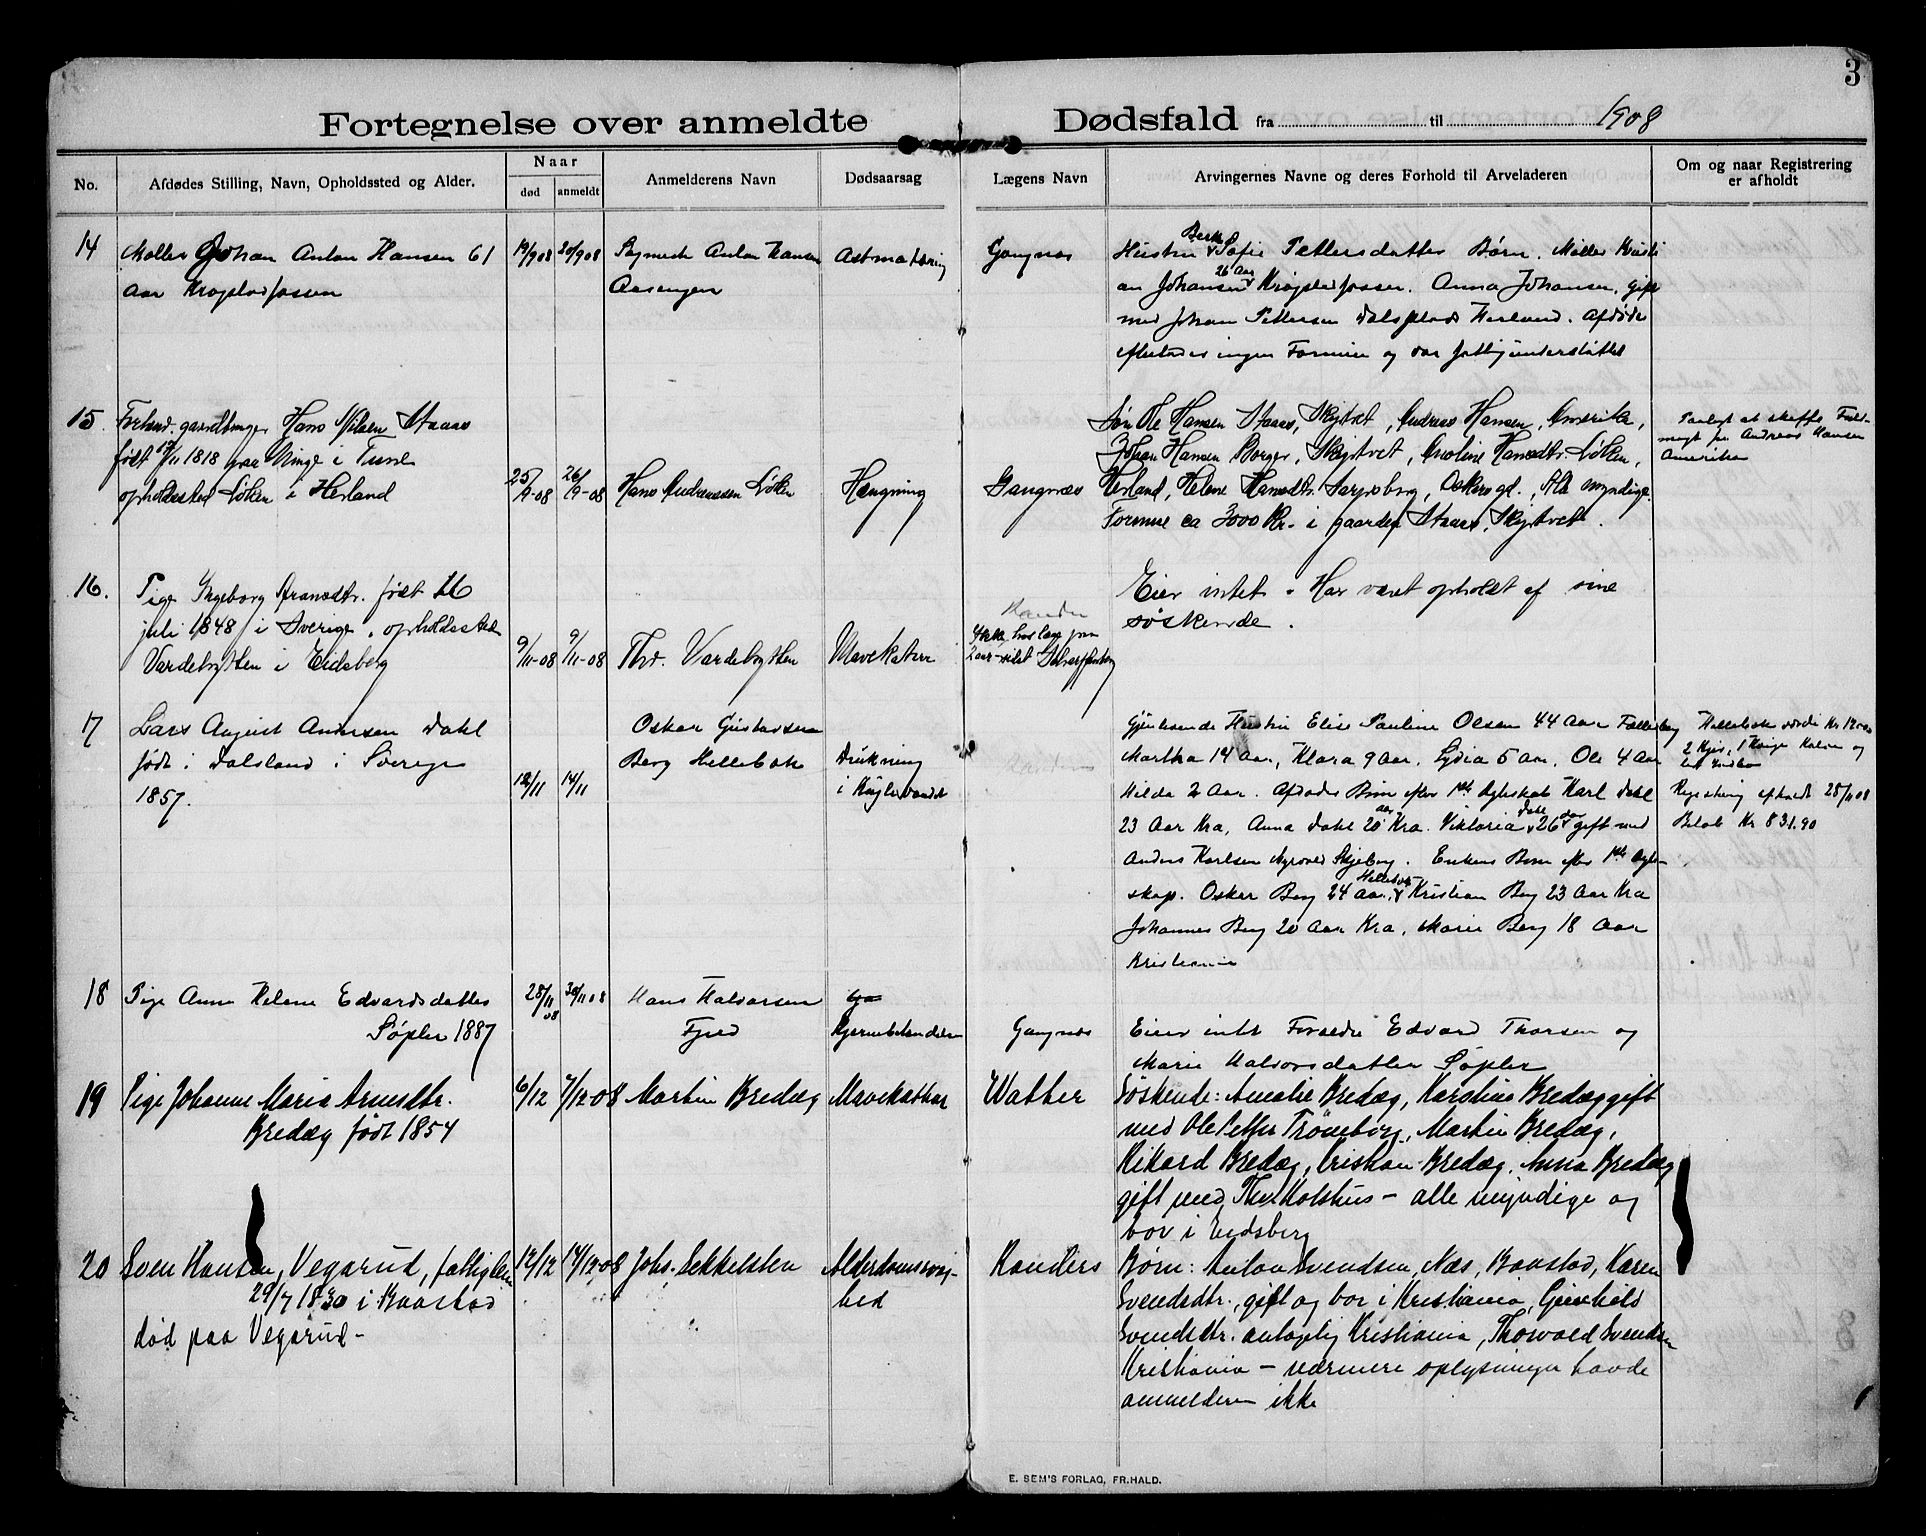 3
Fortegnelse over anmeldte Dødsfald fra til 1908
No. Afdødes Stilling, Navn, Opholdssted og Alder. Naar død anmeldt Anmelderens Navn Dødsaarsag Lægens Navn Arvingernes Navne og deres Forhold til Arveladeren Om og naar Registrering er afholdt
14 Møller Johan Anton Hansen 61 19/9 08 20/9 08 Anton Hansen Gangnæs Hustru Berthe Sofie Pettersdatter Børn. Møller Kristi
aar an Johansen 26 Aar Anna Johansen, gift
med Johan Pettersen Herland. Afdøde
ingen Formue og var fattigunderstøttet
15. Forhend. gaardbruger Hans Nilsen Staas
født 17/11 1818 paa Ninge i Tune
opholdssted Løken i Herland
25/9-08 26/9-08 Hans Andreassen Løken Hængning Gangnæs
Søn Ole Hansen Staas, Skiptvet, Andreas Hansen, Amerika,
Johan Hansen Borger, Skiptvet, Karoline Hansdtr. Løken,
Herland, Helene Hansdtr. Sarpsborg, Alle myndige.
Formue ca 3000 Kr. i gaarden Staas, Skiptvet.
Paalagt at skaffe Fuld-
magt fra Andreas Hansen
Amerika
16. Pige Ingeborg Fransdtr. født 16
juli 1848 i Sverige, opholdssted
Vardebytten i Eidsberg
9/11-08 9/11-08 Thv. Vardebytten Mavekatarr
Eier intet. Har været opholdt af sine
søskende.
17 Lars August Andersen Dahl
født i Dalsland i Sverige
1857.
12/11 14/11 Oskar Gustavsen
Berg Hellebæk
Drukning
i
Gjenlevende Hustru Elise Pauline Olsen 44 Aar
Martha 14 Aar, Klara 9 Aar. Lydia 5 Aar. Ole 4 Aar
Hilda 2 Aar. Afdødes Børn efter 1ste Ægteskab Karl Dahl
23 Aar Kra, Anna Dahl 20 aar Kra. Viktoria Dahl 26 aar gift med
Anders Karlsen Skjeberg. Enkens Børn efter 1ste Ægte-
skap. Oskar Berg 24 Aar, Kristian Berg 23 Aar Kra
Johannes Berg 20 Aar Kra, Marie Berg 18 Aar
Kristiania
2 Kjør, 1 Kvige Kalve og
Registrering afholdt 28/11 08
Beløb Kr 831.90
18 Pige Anne Helene Edvardsdatter
Søpler 1887
28/11 08 30/11 08 Hans Halvorsen
Fjed
Gangnæs Eier intet Forældre Edvard Thorsen og
Marie Halvorsdatter Søpler
19 Pige Johanne Marie Arnesdtr.
Bredæg født 1854
6/12 7/12-08 Martin Bredæg Mavekathar Wather
Søskende: Amalie Bredæg, Karoline Bredæg gift
med Ole Petter Trømborg, Martin Bredæg,
Rikard Bredæg, Kristian Bredæg. Anna Bredæg
gift med Thv. Holshus - alle myndige og
bor i Eidsberg
20 Sven Hansen, Vegarud, fattiglem
29/7 1830 i Baastad
død paa Vegarud -
12/12 14/12-08 Johs. Sekkelsten Alderdomssvag-
hed
Randers
Børn: Anton Svendsen, Næs, Baastad, Karen
Svendsdtr., gift og bor i Kristiania, Gunhild
Svendsdtr. antagelig Kristiania, Thorvald Svendsen
Kristiania - nærmere oplysninger havde
anmelderen ikke
E. SEM'S FORLAG, FR.HALD.